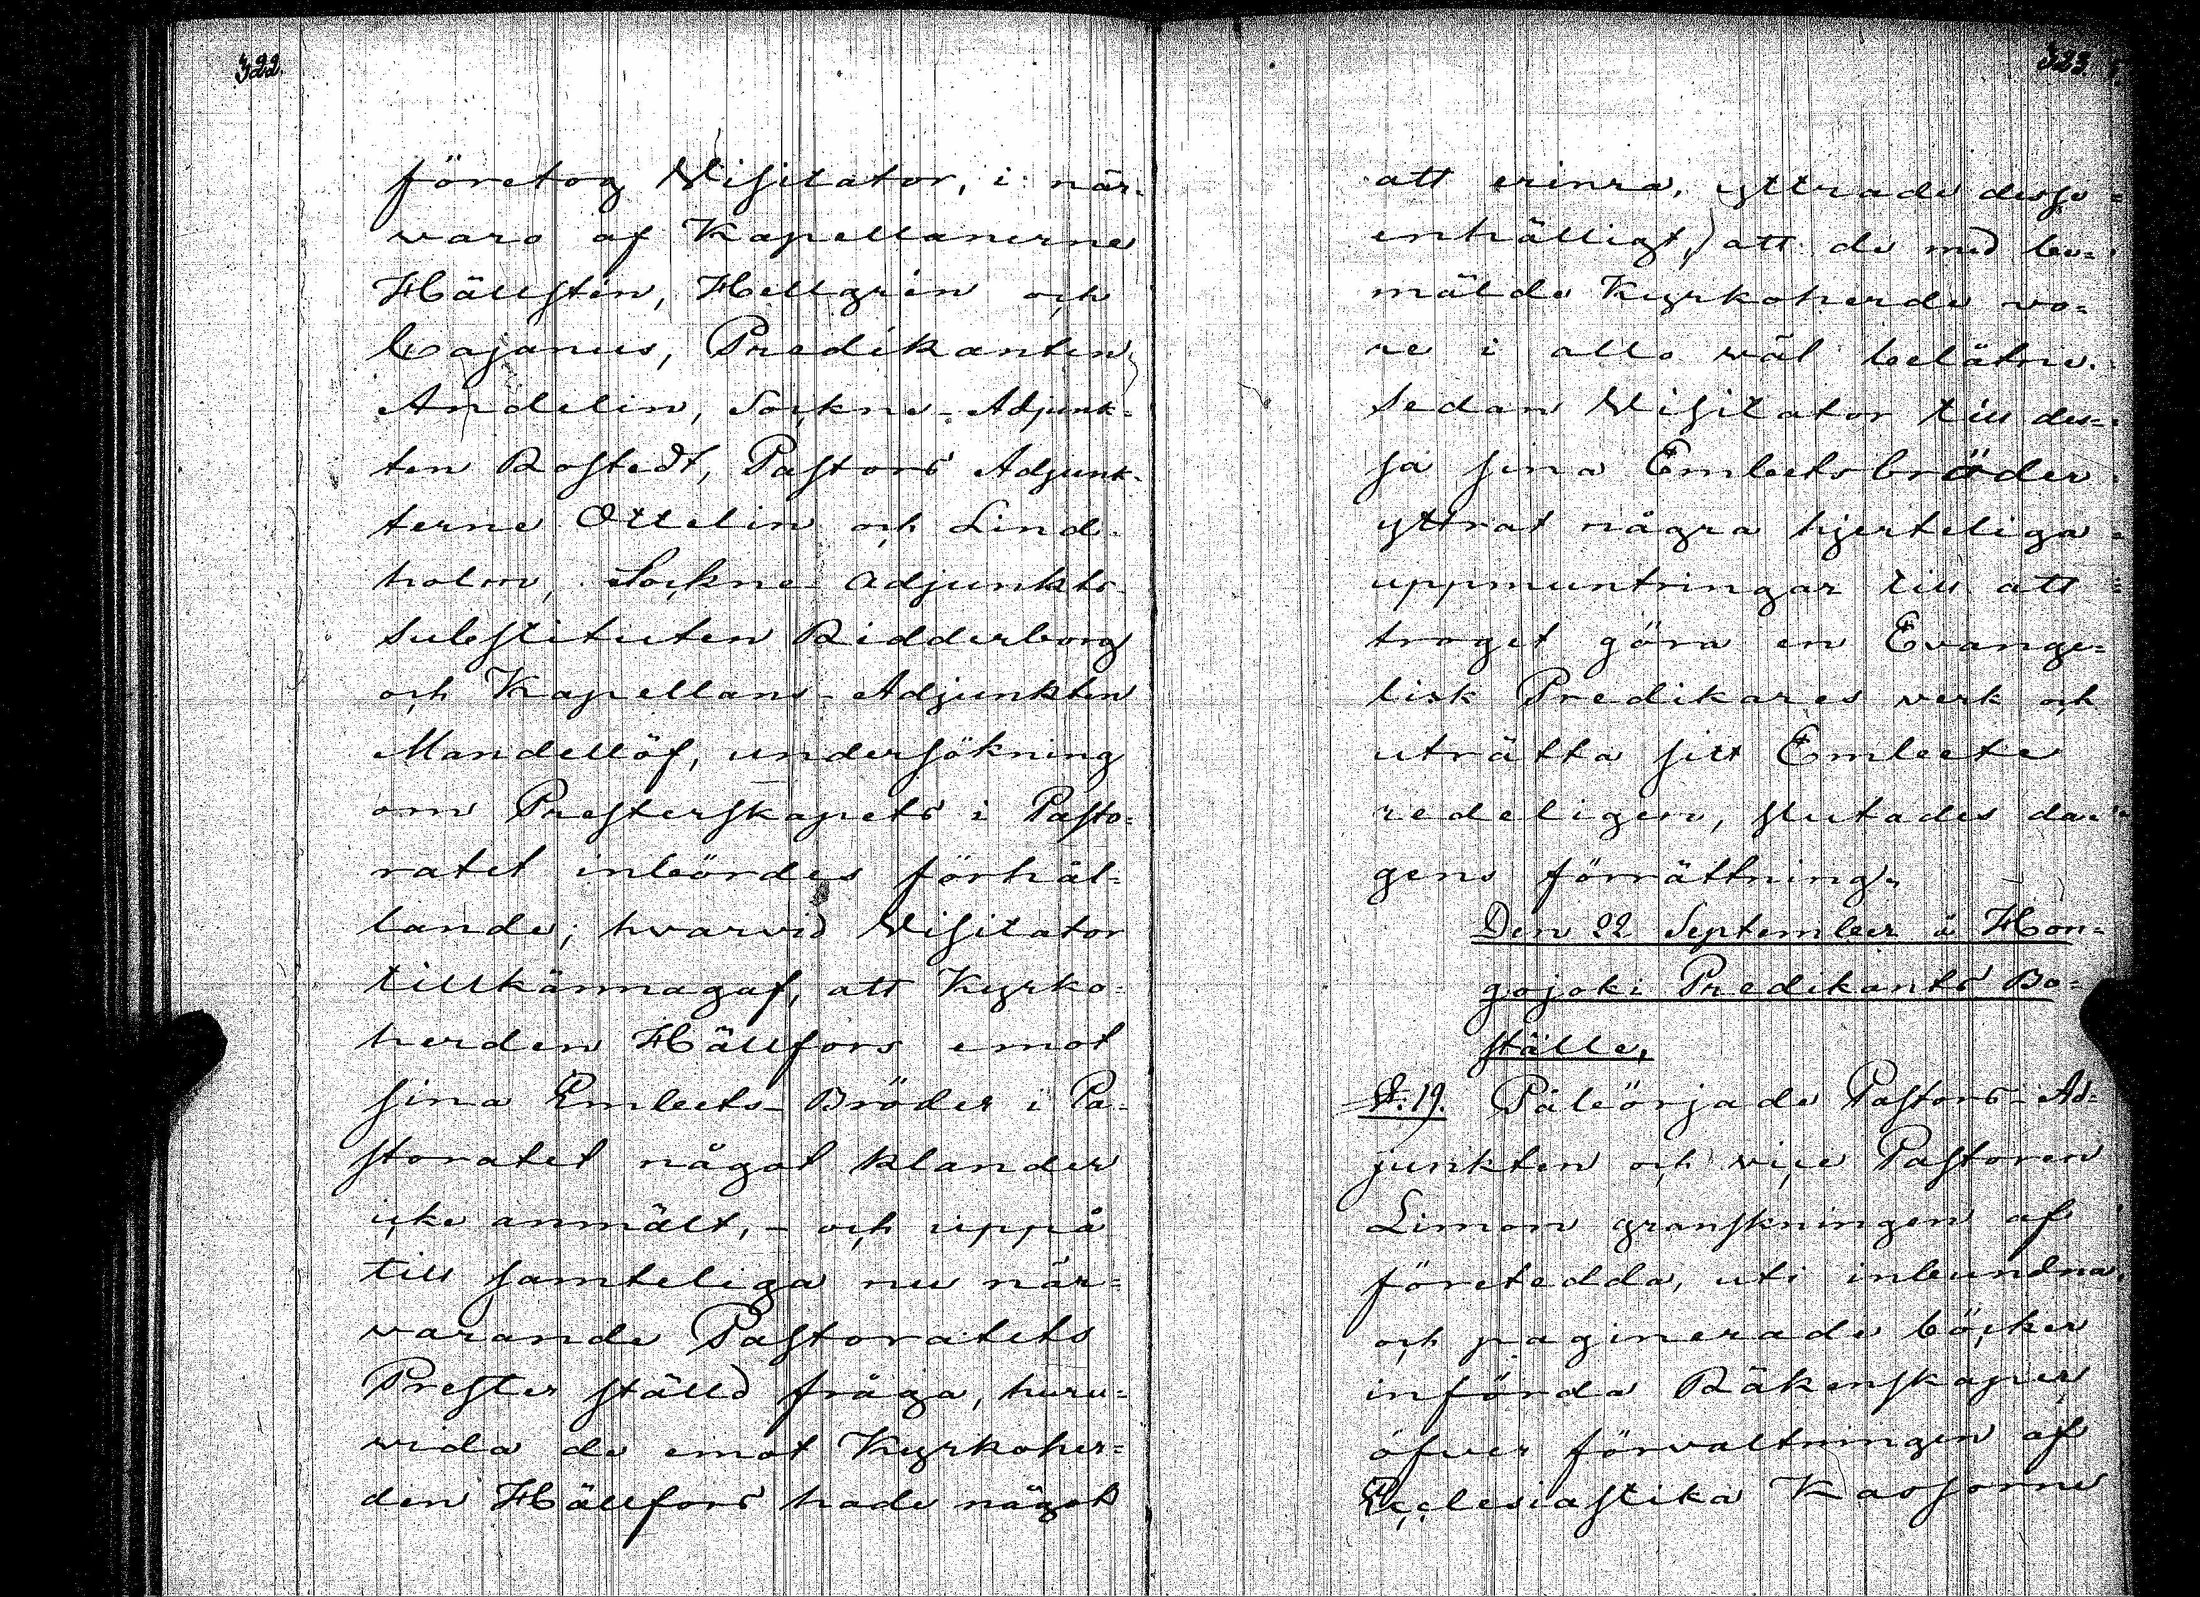 322.
företog Visitator, i när-
waro af Kapellanerne
Hällstén, Hellgrén och
Cajanus, Predikanten
Andelin, Sockne-Adjunk-
ten Rostedt, Pastors Adjunk-
terne Ottelin och Lind-
holm, Sockne-adjunkts-
substituten Ridderborg
och Kapellans-Adjunkten
Mandellöf, undersökning
om Presterskapets i Pasto-
ratet inbördes förhål-
lande; hvarvid Visitator
tillkännagaf, att Kyrko-
herden Hällfors emot
sina Embets-Bröder i Pa-
storatet något klander
icke anmält, - och uppå
till samteliga nu när-
varande Pastoratets
Prester ställd fråga, huru-
vida de emot Kyrkoher-
den Hällfors hade något
323.
att erinra, yttrade desse
enhälligt, att de med be-
mälde Kyrkoherde vo-
re i allo wäl belåtne.
Sedan Visitator till des-
sa sina Embetsbröder
yttrat några hjerteliga
uppmuntringar till att
troget göra en Evange-
lisk Predikares verk och
uträtta sitt Embete
redeligen, slutades da-
gens förrättning.
Den 22 September å Hon-
gojoki Predikants Bo-
ställe,
§. 19. Påbörjade Pastors-Ad-
junkten och vice Pastoren
Limon granskningen af
företedda, uti inbundna
och paginerade böcker
införda Räkenskaper
öfver förvaltningen af
Ecclesiastika Kassorne